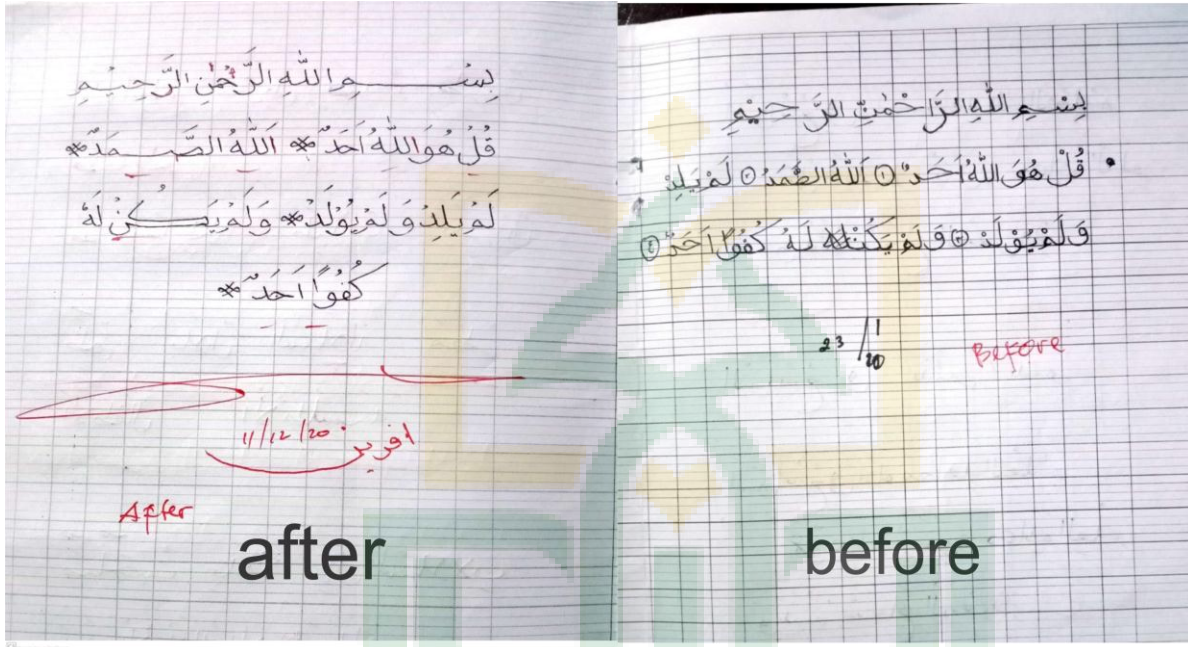 بِسْـــــمِ اللّٰهِ الرَّحْمٰنِ الرَّحِيْمِ
قُلْ هُوَ اللّٰهُ اَحَدٌ * اَللّٰهُ الصَّـــمَدُ *
لَمْ يَلِدْ وَلَمْ يُوْلَدْ * وَلَمْ يَـــكُنْ لَهٗ
كُفُوًا اَحَدٌ *
11/12/20
After
after
بِسْمِ اللّٰهِ الرَّاحْمٰنِ الرَّحِيْمِ
قُلْ هُوَ اللّٰهُ اَحَدٌ ١ اَللّٰهُ الصَّمَدُ ٢ لَمْ يَلِدْ
وَلَمْ يُوْلَدْ ٣ وَلَمْ يَكُنْ لَهُ كُفُوًا اَحَدٌ ٤
23/1
20
Before
before